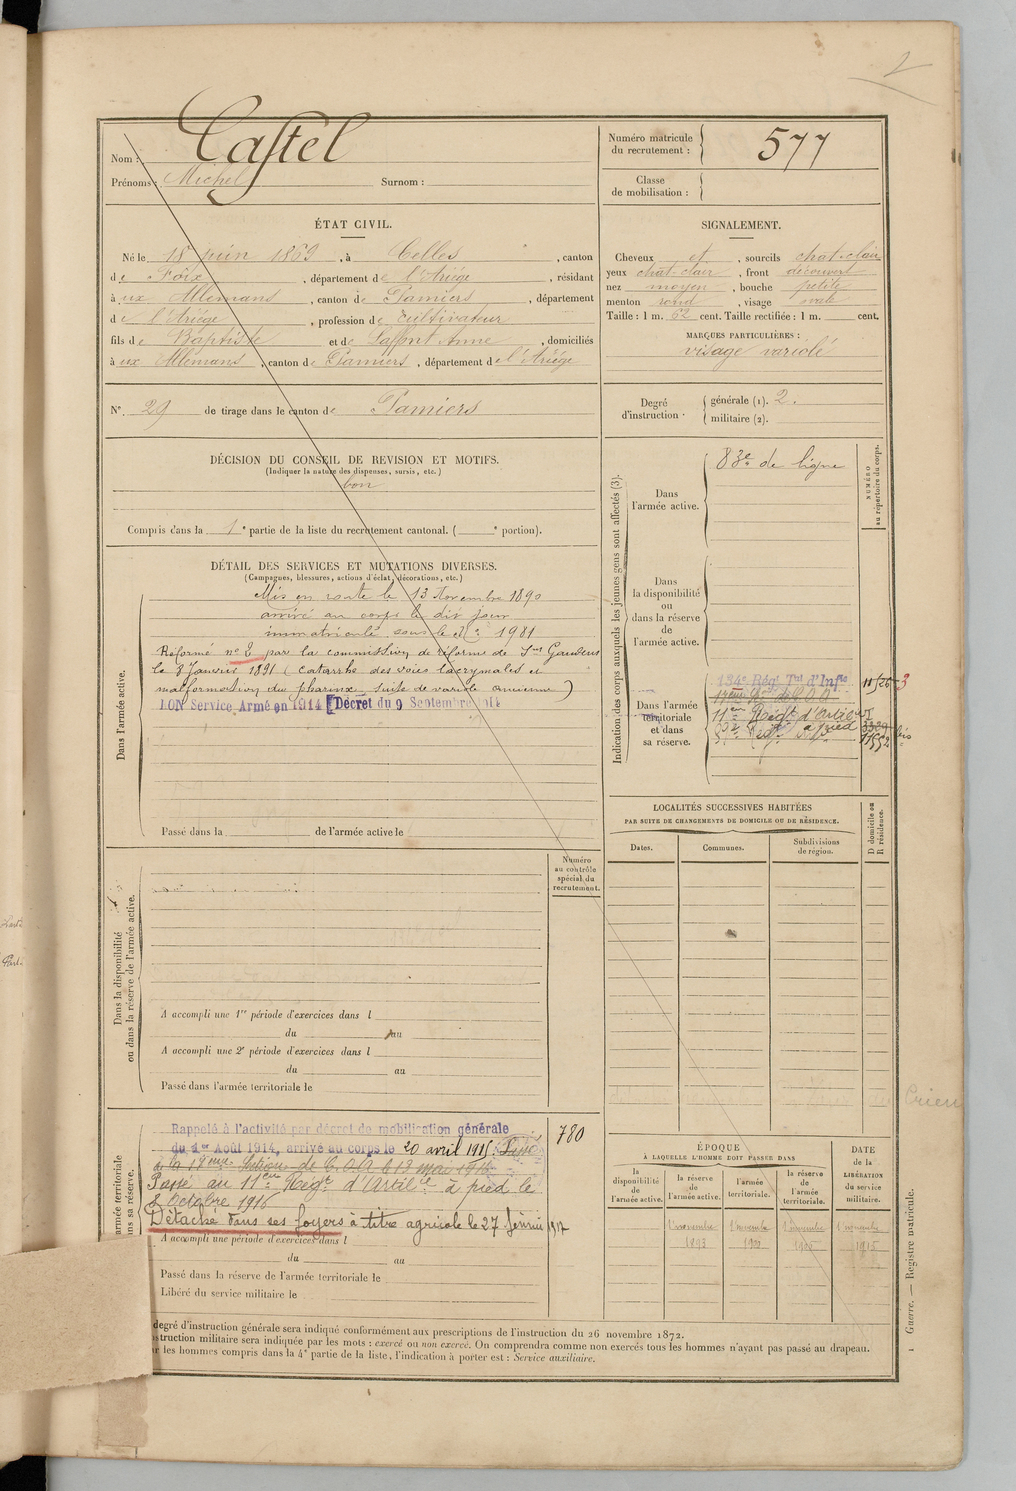 2
Nom : Castel
Prénoms : Michel Surnom :
Numéro matricule du recrutement : 577
Classe de mobilisation :
ÉTAT CIVIL.
Né le 18 juin 1869, à Celles, canton
de Foix, département de l'Ariége, résidant
à ux Allemans, canton de Pamiers, département
de l'Ariége, profession de Cultivateur
fils de Baptiste et de Laffont Anne, domiciliés
à ux Allemans, canton de Pamiers, département de l'Ariége
N° 29 de tirage dans le canton de Pamiers
SIGNALEMENT.
Cheveux et, sourcils chat-clair
yeux chat-clair, front découvert
nez moyen, bouche petite
menton rond, visage ovale
Taille : 1 m. 62 cent. Taille rectifiée : 1 m. cent.
MARQUES PARTICULIÈRES :
visage variolé
Degré d'instruction.
générale (1). 2.
militaire (2).
DÉCISION DU CONSEIL DE REVISION ET MOTIFS.
(Indiquer la nature des dispenses, sursis, etc.)
bon
Compris dans la 1e partie de la liste du recrutement cantonal. ( e portion).
DÉTAIL DES SERVICES ET MUTATIONS DIVERSES.
(Campagnes, blessures, actions d'éclat, décorations, etc.)
Dans l'armée active.
Mis en route le 13 Novembre 1890
arrivé au corps le dit jour
immatriculé sous le n° 1981
Réformé n° 2 par la commission de réforme de St Gaudens
le 8 Janvier 1891 (Catarrhe des voies lacrymales et
malformation du pharinx suite de variole ancienne)
BON Service Armé en 1914 [Décret du 9 Septembre 1914
Passé dans la de l'armée active le
Indication des corps auxquels les jeunes gens sont affectés (3).
NUMÉRO au répertoire du corps.
Dans l'armée active.
83e de ligne
Dans la disponibilité ou dans la réserve de l'armée active.
Dans l'armée territoriale et dans sa réserve.
134e Régt Tal d'Infie
11 Régt d'Artie
à pied
LOCALITÉS SUCCESSIVES HABITÉES
PAR SUITE DE CHANGEMENTS DE DOMICILE OU DE RÉSIDENCE.
Dates. Communes. Subdivisions de région.
D domicile ou R résidence.
Numéro au contrôle spécial du recrutement.
Dans la disponibilité ou dans la réserve de l'armée active.
A accompli une 1re période d'exercices dans l
du au
A accompli une 2e période d'exercices dans l
du au
Passé dans l'armée territoriale le
armée territoriale
ans sa réserve.
Rappelé à l'activité par décret de mobilisation générale
du 1er Août 1914, arrivé au corps le 20 avril 1915. Passé
à la 18eme Section de C.O.A le 13 mai 1916
Passé au 11eme Régt d'Artilie à pied le
2 Octobre 1916
Détaché dans ses foyers à titre agricole le 27 février 1917
780
A accompli une période d'exercices dans l
du au
Passé dans la réserve de l'armée territoriale le
Libéré du service militaire le
ÉPOQUE
À LAQUELLE L'HOMME DOIT PASSER DANS
la disponibilité de l'armée active.
la réserve de l'armée active.
l'armée territoriale.
la réserve de l'armée territoriale.
DATE de la LIBÉRATION du service militaire.
1 novembre 1893
1 novembre 1900
1 novembre 1906
1 novembre 1915
degré d'instruction générale sera indiqué conformément aux prescriptions de l'instruction du 26 novembre 1872.
struction militaire sera indiquée par les mots : exercé ou non exercé. On comprendra comme non exercés tous les hommes n'ayant pas passé au drapeau.
les hommes compris dans la 4e partie de la liste, l'indication à porter est : Service auxiliaire.
Guerre. — Registre matricule.